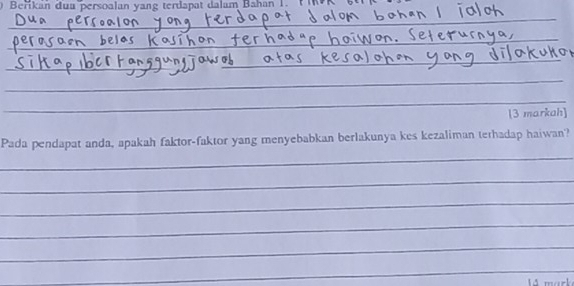 Berikan dua persoalan yang terdapat dalam Bahan 1.
Dua persoalan yang terdapat dalam bahan 1 ialah
perasaan belas kasihan terhadap haiwan. Seterusnya,
sikap bertanggungjawab atas kesalahan yang dilakukan
[3 markah]
Pada pendapat anda, apakah faktor-faktor yang menyebabkan berlakunya kes kezaliman terhadap haiwan?
[4 mark